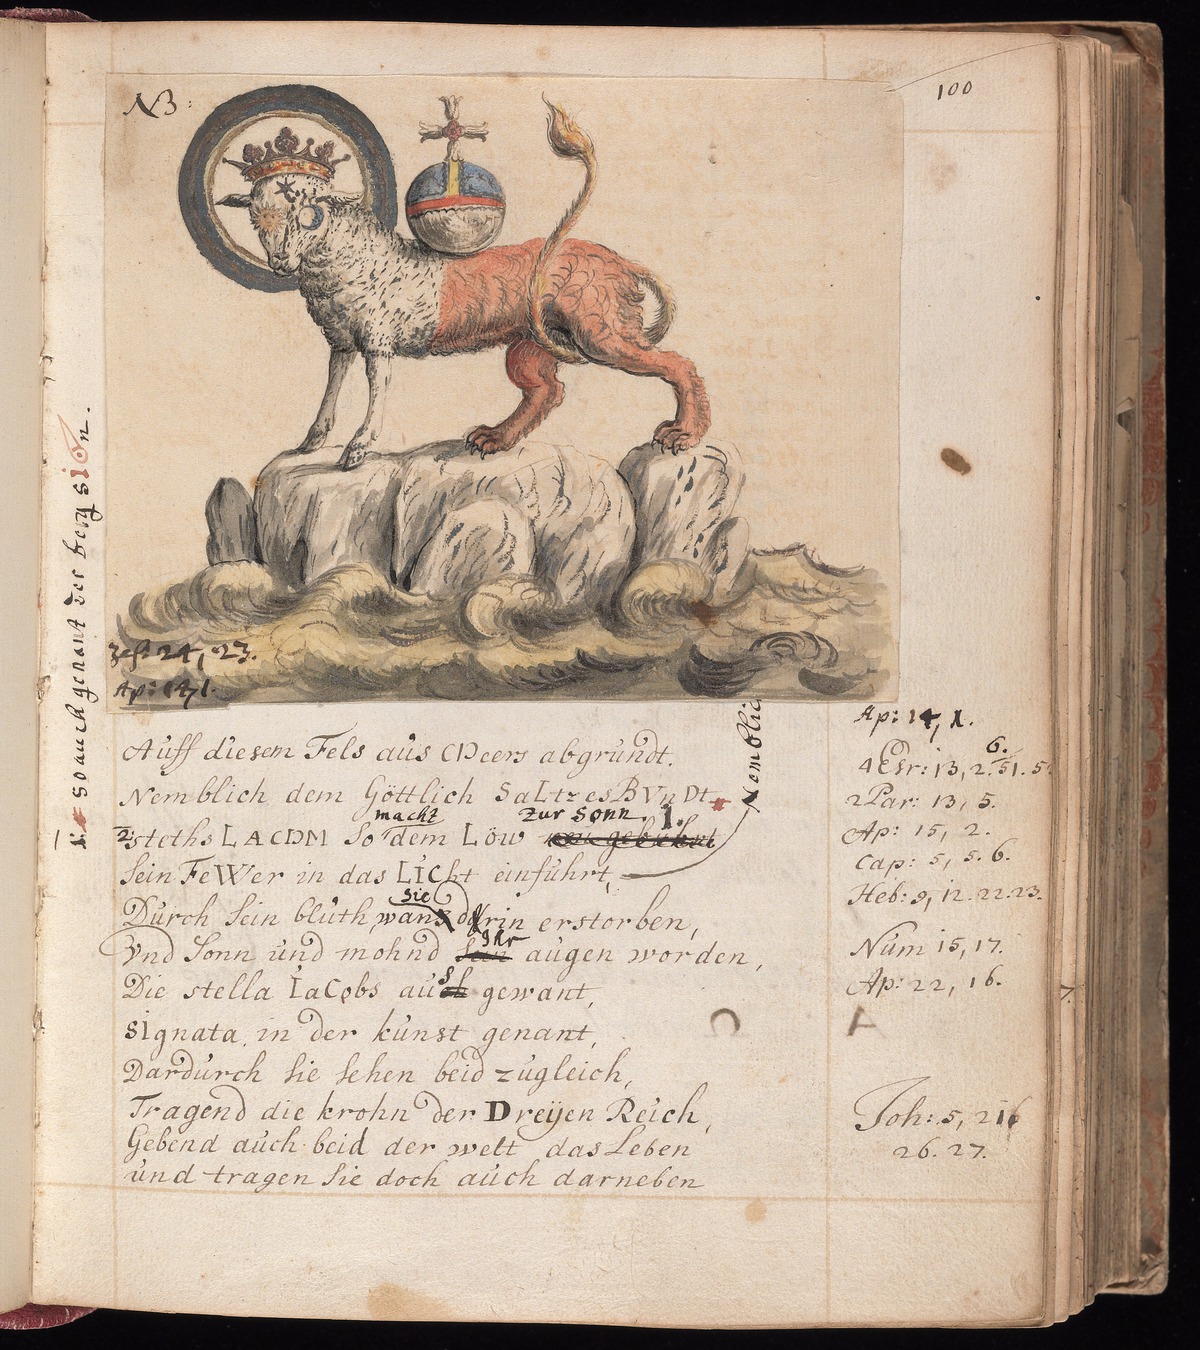 NB:
100
so auch genant der berg sion.
Esa: 24, 23.
Ap: 14, 1.
Nemblich
Auff diesem Fels aus Meers abgrundt.
Nemblich dem Göttlich SaLtzesBVnDt
macht zur Sonn. 1.
2 steths LACDM So dem Löw
Sein FeWer in das LICht einführt,
sie
Durch sein bluth, wans darin erstorben,
Ihr
Vnd Sonn und mohnd sein augen worden,
Die stella IaCobs auch gewant,
sIgnata in der kunst genant,
Dardurch sie sehen beid zugleich,
Tragend die krohn der Dreÿen Reich,
Gebend auch beid der welt das Leben
und tragen sie doch auch darneben
Ap: 14, 1.
6.
4 Esr: 13, 2. 51. 5
2 Par: 13, 5.
Ap: 15, 2.
Cap: 5, 5. 6.
Heb: 9, 12. 22. 23.
Num 15, 17.
Ap: 22, 16.
7.
Joh: 5, 21
26. 27.